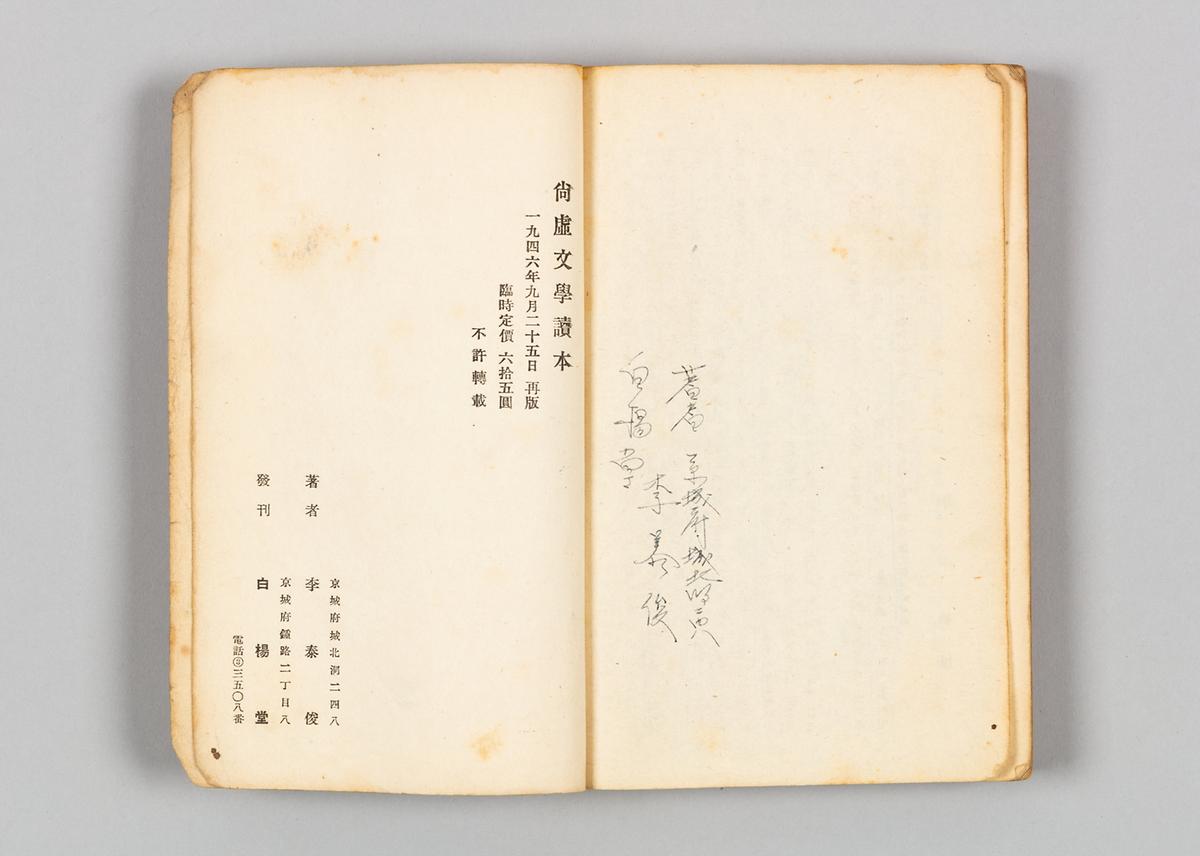 著者 京城府城北洞二四八
李泰俊
白楊堂
尙虛文學讀本
一九四六年九月二十五日 再版
臨時定價 六拾五圓
不許轉載
京城府城北洞二四八
著者 李泰俊
京城府鐘路二丁目八
發刊 白楊堂
電話 三五〇八番